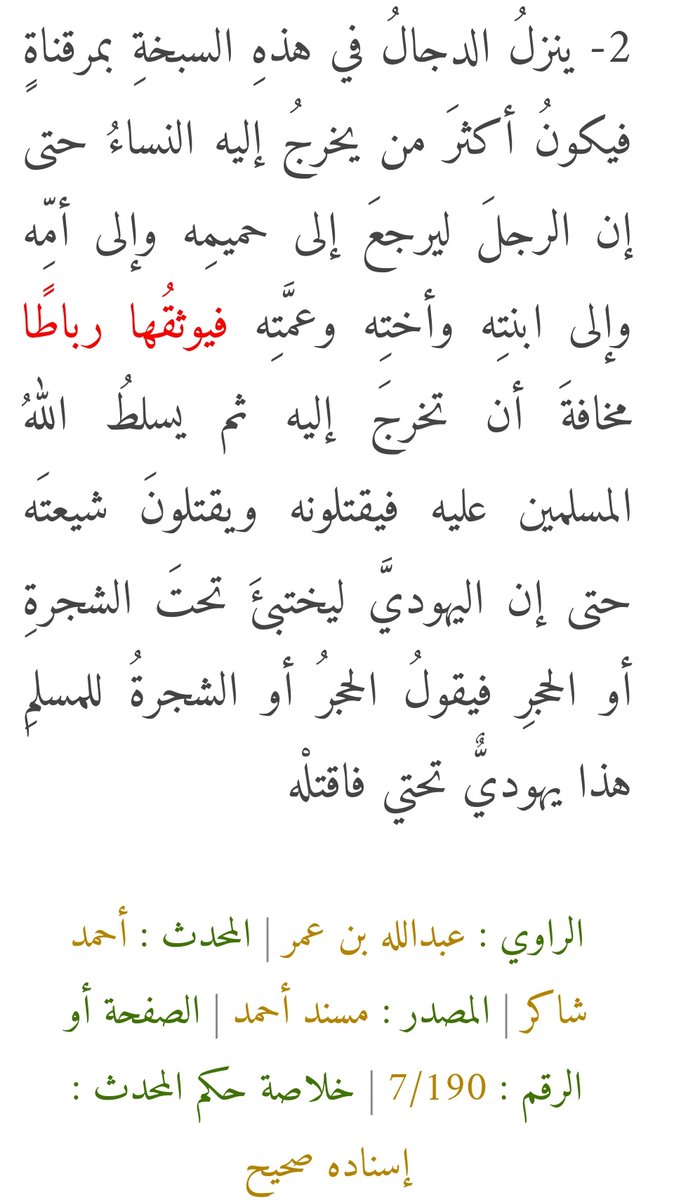 2- ينزلُ الدجالُ في هذهِ السبخةِ بمرقناةٍ
فيكونُ أكثرَ من يخرجُ إليه النساءُ حتى
إن الرجلَ ليرجعَ إلى حميمِه وإلى أمِّه
وإلى ابنتِه وأختِه وعمَّتِه فيوثقُها رباطًا
مخافةَ أن تخرجَ إليه ثم يسلطُ اللهُ
المسلمين عليه فيقتلونه ويقتلونَ شيعتَه
حتى إن اليهوديَّ ليختبئَ تحتَ الشجرةِ
أو الحجرِ فيقولُ الحجرُ أو الشجرةُ للمسلمِ
هذا يهوديٌّ تحتي فاقتلْه
الراوي : عبدالله بن عمر | المحدث : أحمد
شاكر | المصدر : مسند أحمد | الصفحة أو
الرقم : 7/190 | خلاصة حكم المحدث :
إسناده صحيح